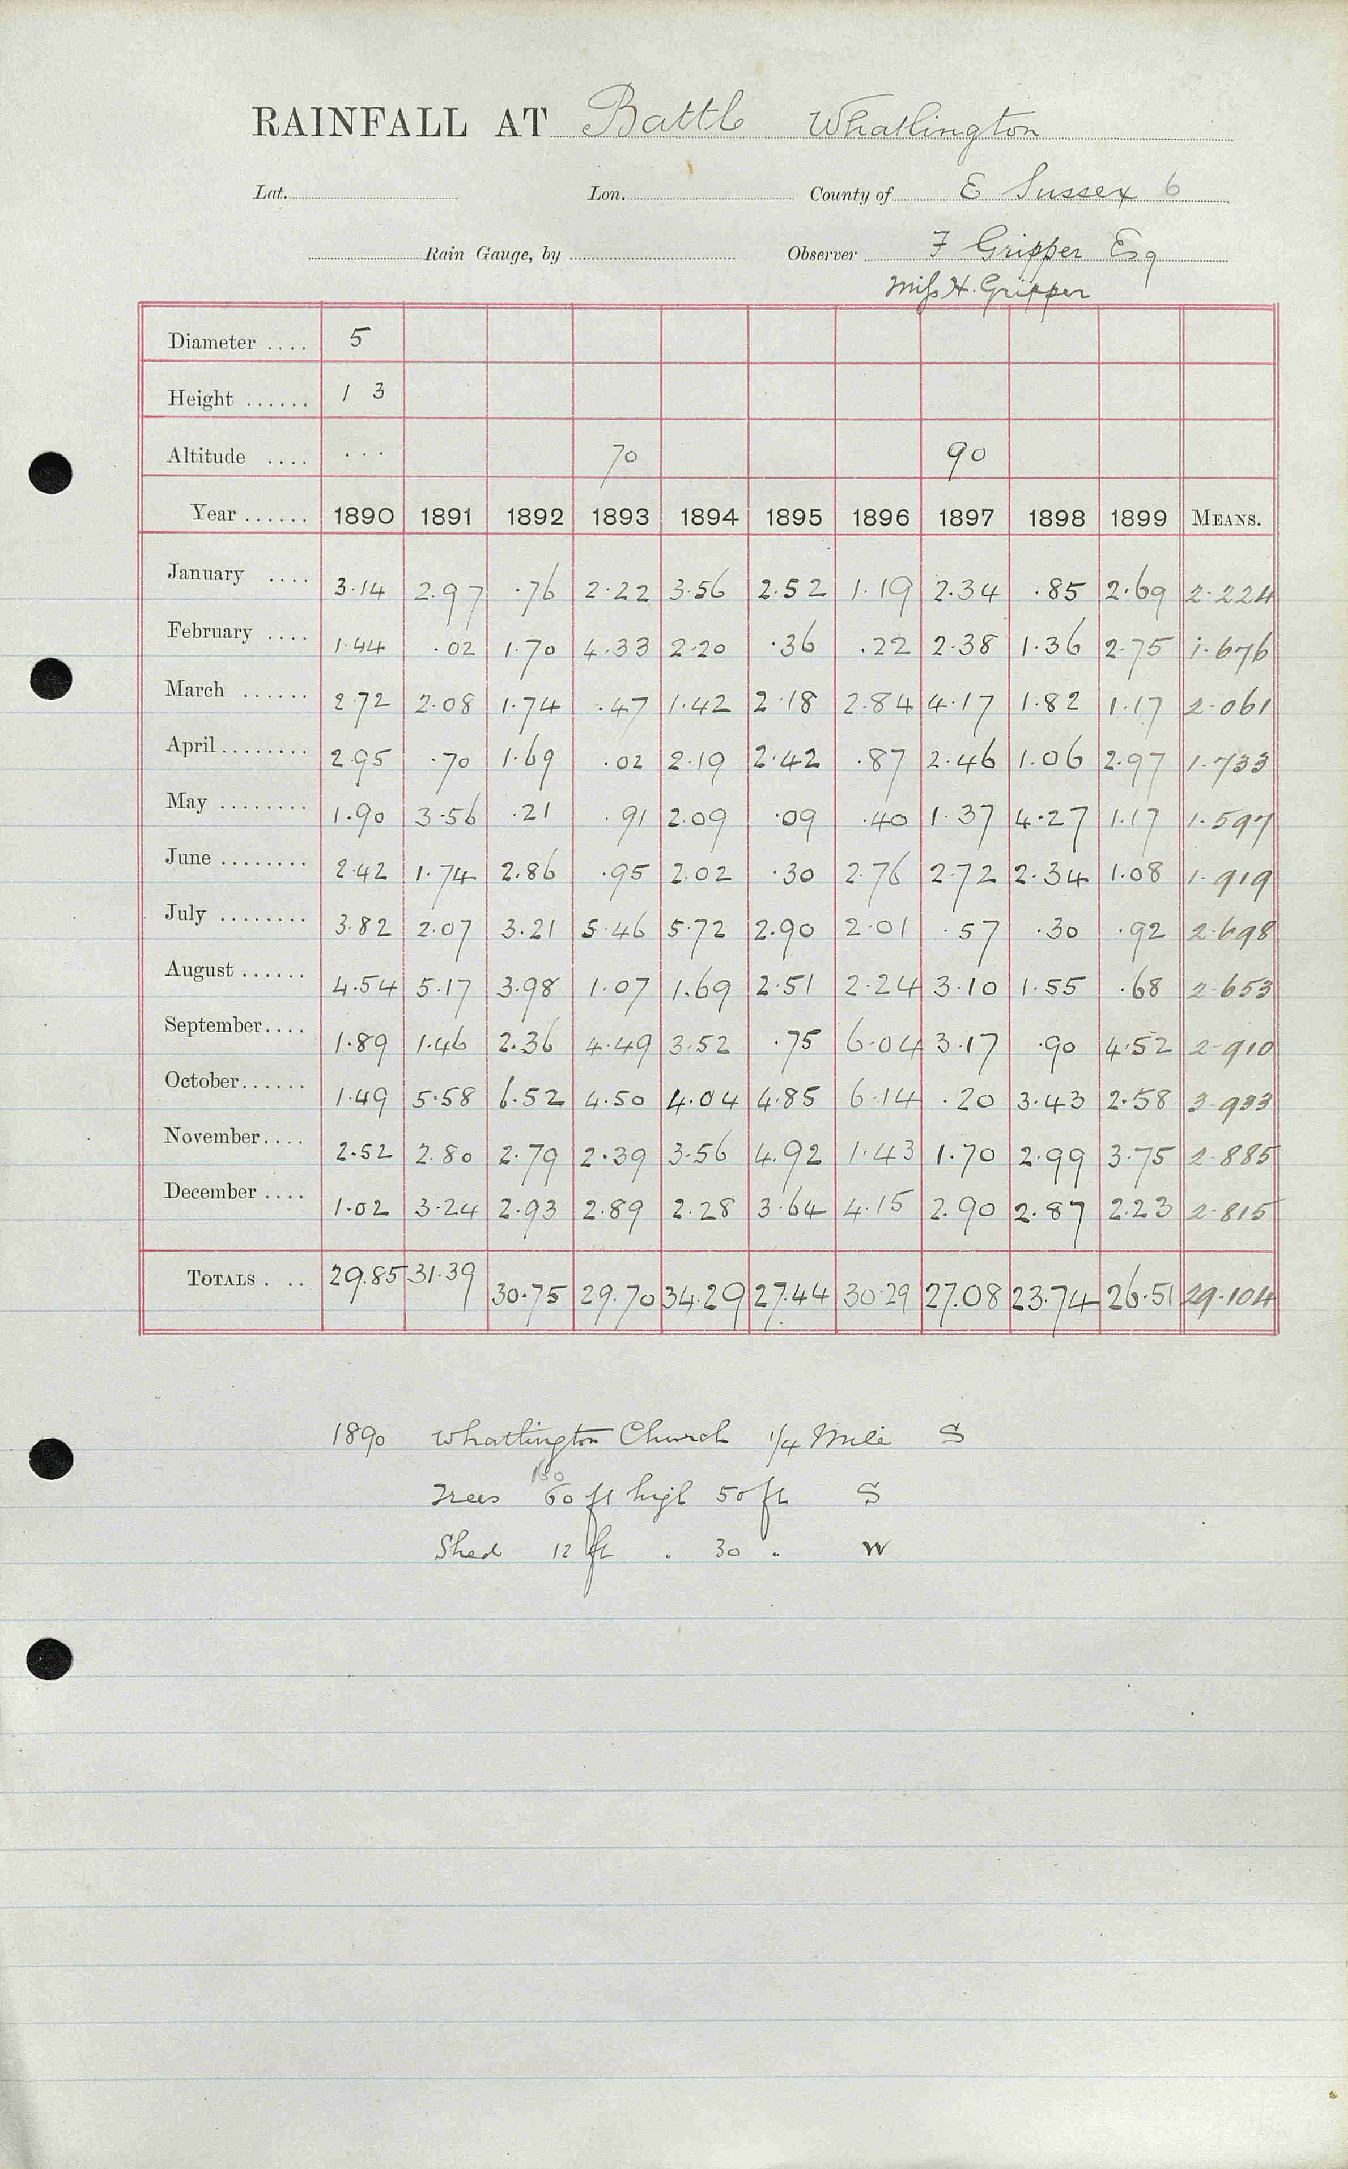 RAINFALL AT Battle Whatlington
Lat. Lon. County of E Sussex 6
Rain Gauge, by Observer F Gripper Esq
Miss H. Gripper
Diameter .... 5
Height ...... 1 3
Altitude .... ... 70 90
Year ...... 1890 1891 1892 1893 1894 1895 1896 1897 1898 1899 MEANS.
January .... 3.14 2.97 .76 2.22 3.56 2.52 1.19 2.34 .85 2.69 2.224
February .... 1.44 .02 1.70 4.33 2.20 .36 .22 2.38 1.36 2.75 1.676
March ...... 2.72 2.08 1.74 .47 1.42 2.18 2.84 4.17 1.82 1.17 2.061
April ........ 2.95 .70 1.69 .02 2.19 2.42 .87 2.46 1.06 2.97 1.733
May ........ 1.90 3.56 .21 .91 2.09 .09 .40 1.37 4.27 1.17 1.597
June ........ 2.42 1.74 2.86 .95 2.02 .30 2.76 2.72 2.34 1.08 1.919
July ........ 3.82 2.07 3.21 5.46 5.72 2.90 2.01 .57 .30 .92 2.698
August ...... 4.54 5.17 3.98 1.07 1.69 2.51 2.24 3.10 1.55 .68 2.653
September.... 1.89 1.46 2.36 4.49 3.52 .75 6.04 3.17 .90 4.52 2.910
October...... 1.49 5.58 6.52 4.50 4.04 4.85 6.14 .20 3.43 2.58 3.933
November.... 2.52 2.80 2.79 2.39 3.56 4.92 1.43 1.70 2.99 3.75 2.885
December .... 1.02 3.24 2.93 2.89 2.28 3.64 4.15 2.90 2.87 2.23 2.815
TOTALS . .. 29.85 31.39 30.75 29.70 34.29 27.44 30.29 27.08 23.74 26.51 29.104
1890 Whatlington Church 1/4 Mile S
Trees 60 ft high 50 ft S
Shed 12 ft . 30 . W